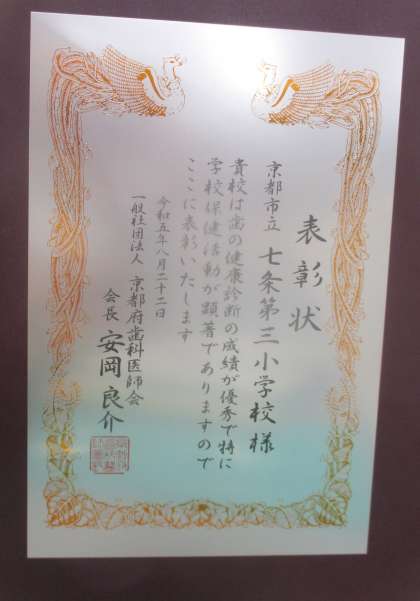 表彰状
京都市立 七条第三小学校様
貴校は歯の健康診断の成績が優秀で特に
学校保健活動が顕著でありますので
ここに表彰いたします
令和五年八月二十二日
一般社団法人 京都府歯科医師会
会長 安岡良介